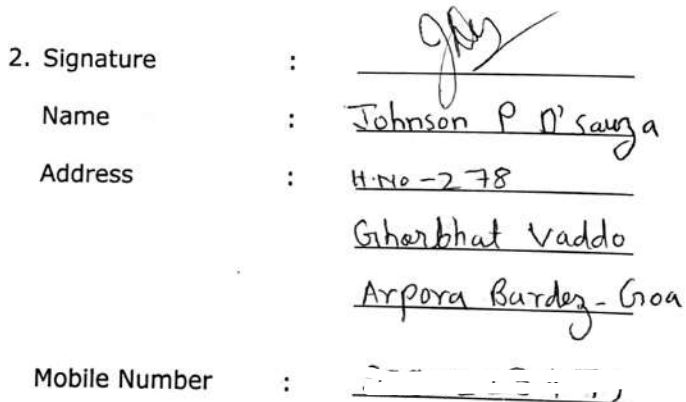 2. Signature :
Name : Johnson P D'sauza
Address : H.No-278
Gharbhat Vaddo
Arpora Bardez-Goa
Mobile Number :